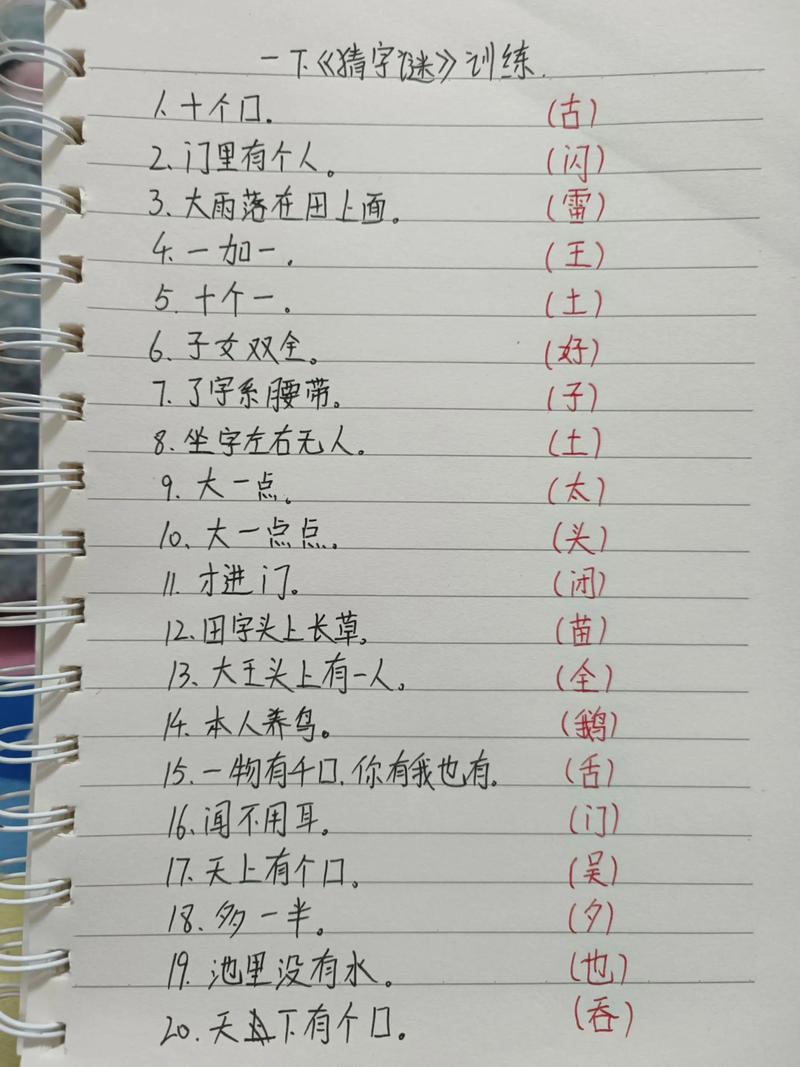 一下《猜字谜》训练.
1.十个口。 (古)
2.门里有个人。 (闪)
3.大雨落在田上面。 (雷)
4.一加一. (王)
5.十个一。 (土)
6.子女双全。 (好)
7.了字系腰带。 (子)
8.坐字左右无人。 (土)
9.大一点。 (太)
10.大一点点。 (头)
11.才进门。 (闭)
12.田字头上长草。 (苗)
13.大王头上有一人。 (全)
14.本人养鸟。 (鹅)
15.一物有千口,你有我也有。 (舌)
16.闻不用耳。 (门)
17.天上有个口。 (吴)
18.多一半。 (夕)
19.池里没有水。 (也)
20.天下有个口。 (吞)